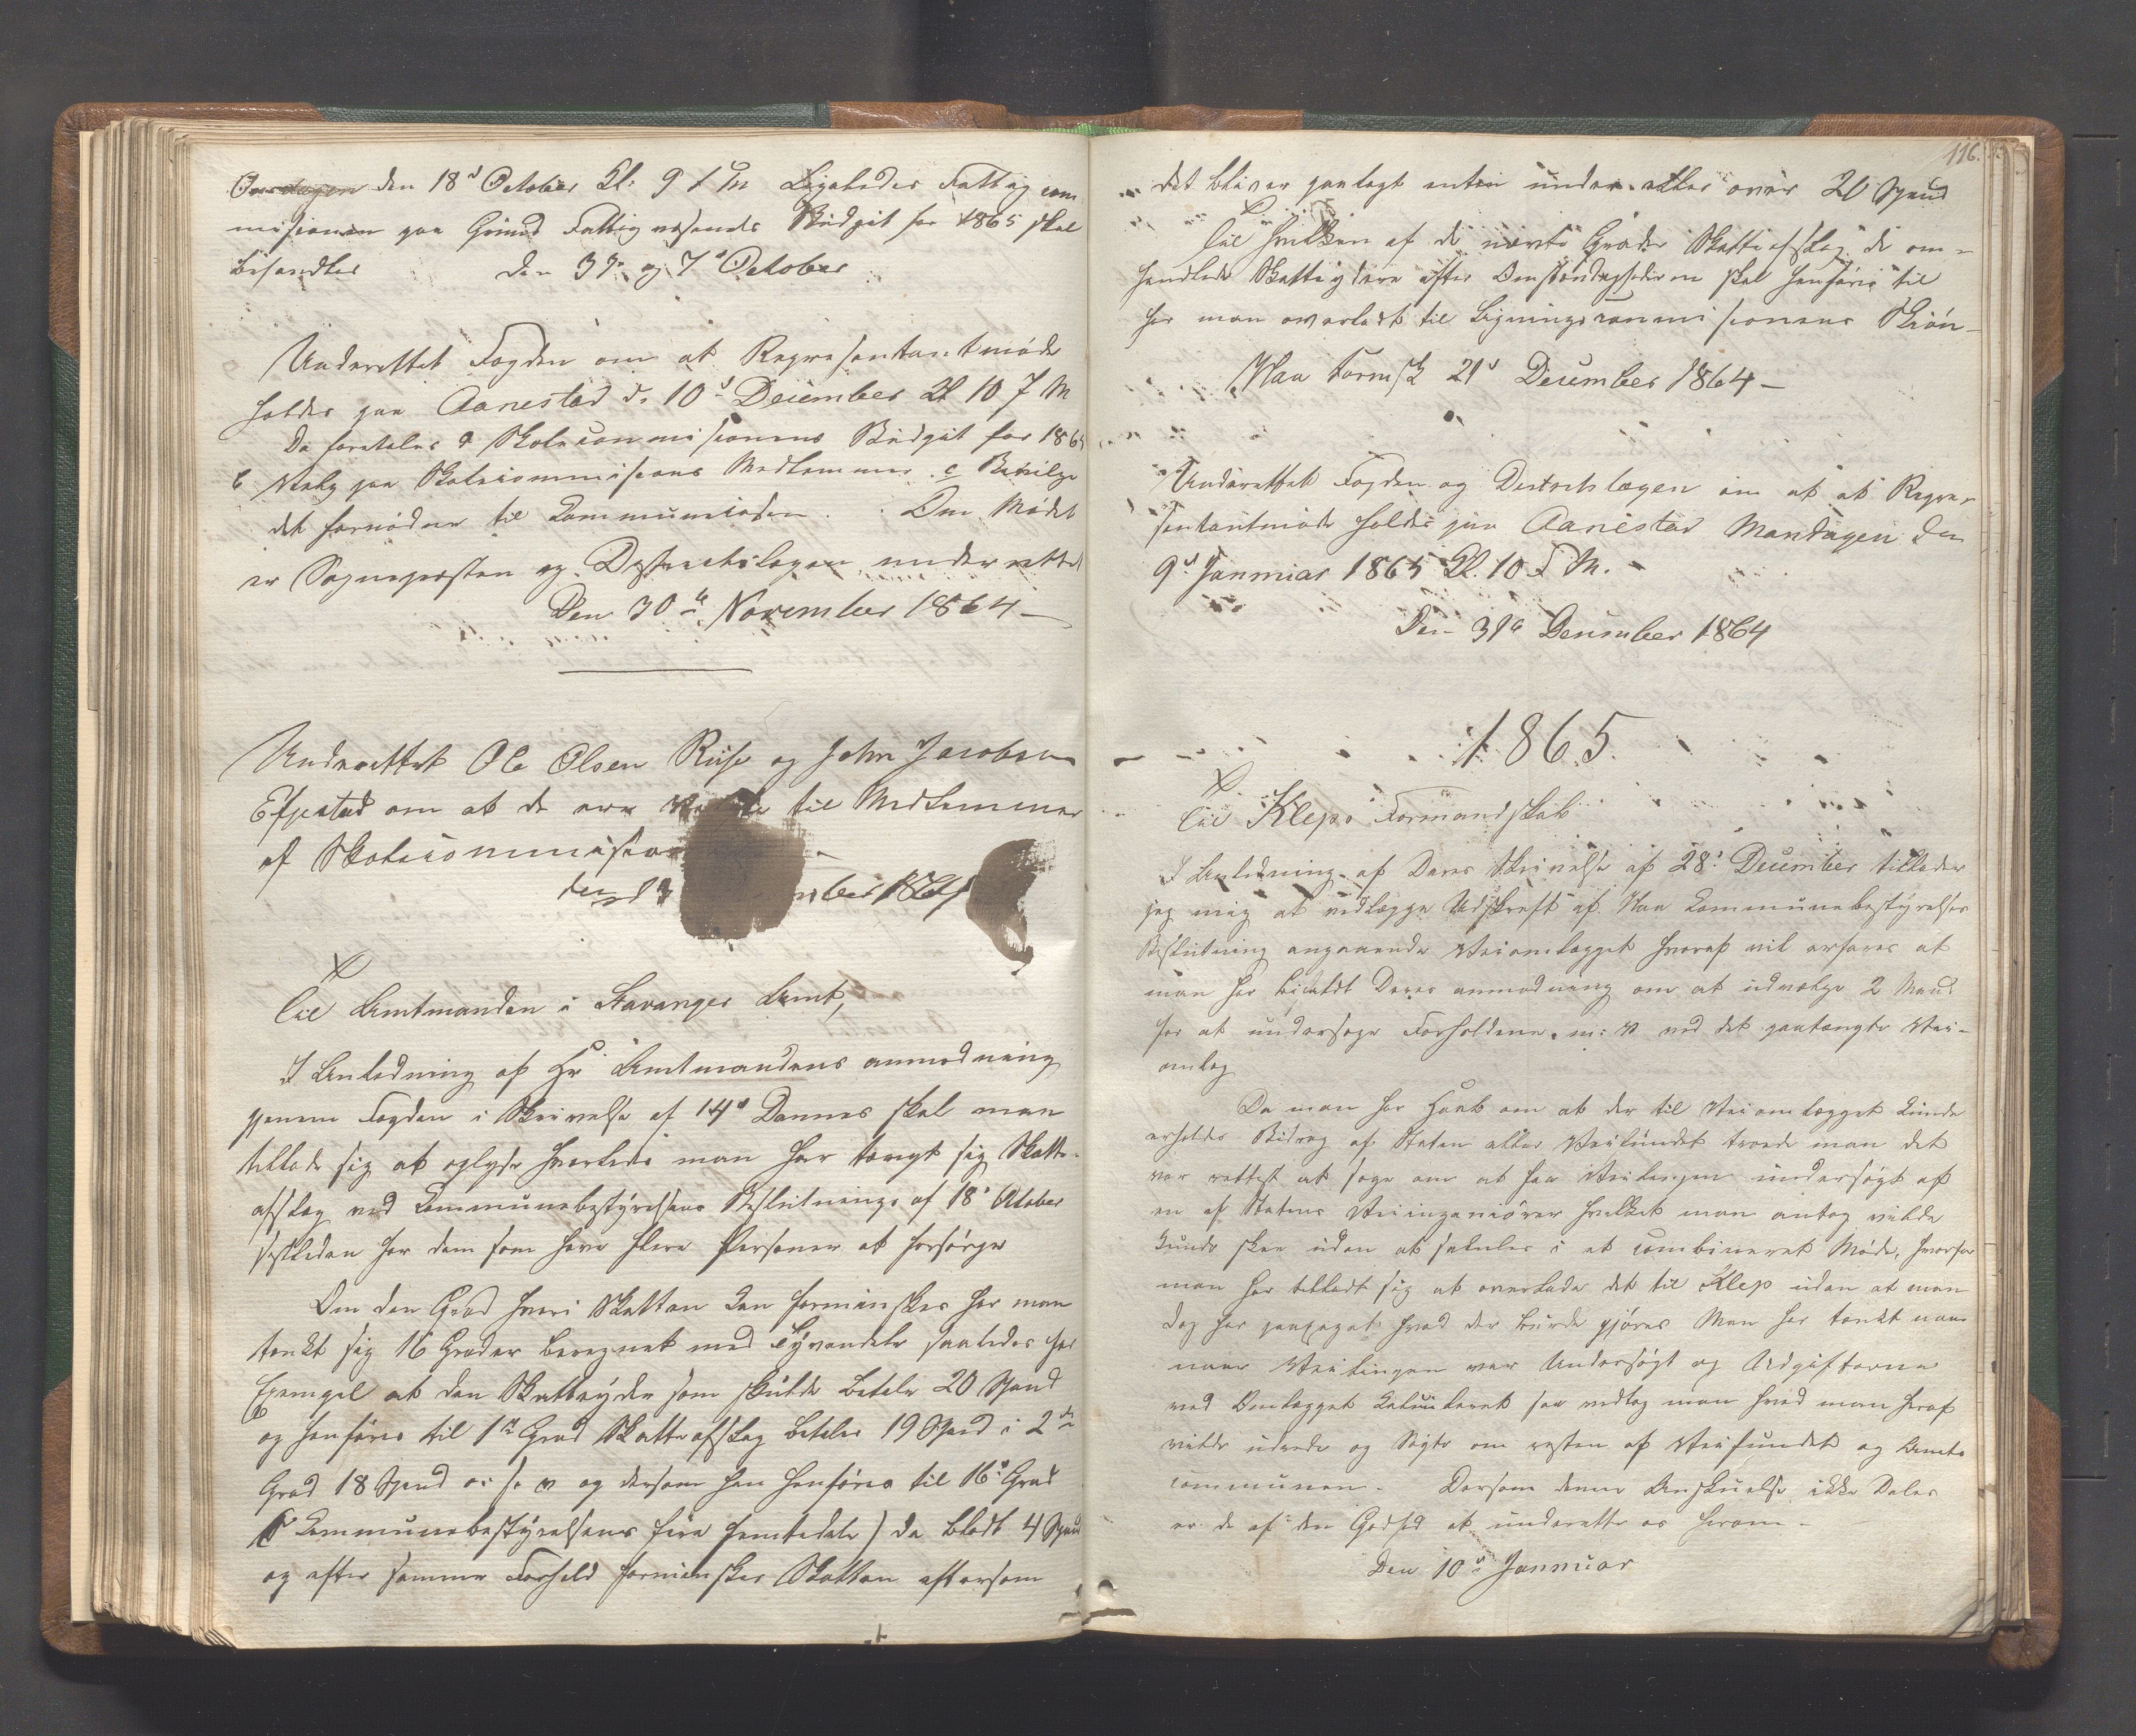 Onsdagen den 18d October Kl: 9 f m Ligeledes Fattigcom
misionen paa Grund Fattigvæsenets Budget for 1865 skal
behandles den 3die og 7d October
Underrettet Fogden om at Representantmøde
holdes paa Aanestad d. 10d December Kl 10 F M
Da foretales a Skolecommisionens Budget for 1865
b Valg paa Skolecommisions Medlemmer c Bevilge
det fornødne til Kommunekassen. Om Mødet
er Sognepresten og Destrectslægen underrettet
Den 30te November 1864 —
Underrettet Ole Olsen Riise og John Jacobsen
Efjestad om at de ere valgte til Medlemmer
af Skolecommision
den mber 1864
Til Amtmanden i Stavanger Amt,
I Anledning af Hr Amtmandens anmodning
gjenem Fogden i Skrivelse af 14d Dennes skal man
tillade sig at oplyse hvorledes man har tænkt sig Skatte-
afslag ved Communebestyrelsens Beslutning af 18d October
sistleden for dem som have flere Personer at forsørge
Om den Grad hvori Skatten kan forminskes har man
tænkt sig 16 Grader beregnet med Tyvendele saaledes for
Exempel at den Skatteyder som skulde betale 20 Spend
og henføres til 1ste Grad Skatteafslag betaler 19 Spend i 2den
Grad 18 Spend o: s. v og dersom han henføres til 16d Grad
(Communebestyrelsens fire femtedele) da blodt 4 Spend
og efter samme Forhold forminskes Skatten eftersom
116.
det bliver paalagt enten under eller over 20 Spend
Til hvilken af de nævnte Grader Skatteafslag de om-
handlede Skatteydere efter Omstændighederne skal henføres til
har man overladt til Ligningscommisionens Skjøn —
Haa Formsk 21d December 1864 —
Underrettet Fogden og Destrctslægen om at et Repre-
sentantmøde holdes paa Aanestad Mandagen den
9d Januar 1865 Kl. 10 F M. —
Den 31te December 1864
1865.
Til Kleps Formandskab
I Anledning af Deres Skrivelse af 28d December tillader
jeg mig at vedlægge Udskreft af Haa Communebestyrelses
Beslutning angaaende Veiomlægget hvoraf vil erfares at
man har bifaldt Deres anmodning om at udvælge 2 Mænd
for at undersøge Forholdene m: v ved det paatænkte Vei-
omlæg
Da man har Haab om at der til Veiomlægget kunde
erholdes Bidrag af Staten eller Veifundet troede man det
var rettest at søge om at faa Veilinjen undersøgt af
en af Statens Veiingeniører hvilket man antog vilde
kunde skee uden at saledes i et combineret Møde, hvorfor
man har tilladt sig at overlade det til Klep uden at man
dog har paapeget hvad der burde gjøres Man har tænkt naar
naar Veilinjen var Undersøgt og Udgifterne
ved Omlægget kalkuleret saa vedtog man hvad man heraf
vilde udrede og Søgte om resten af Veifundet og Amts
communen. Dersom denne Anskuelse ikke Deles
er de af den Godhed at underrette os herom —
Den 10d Januar